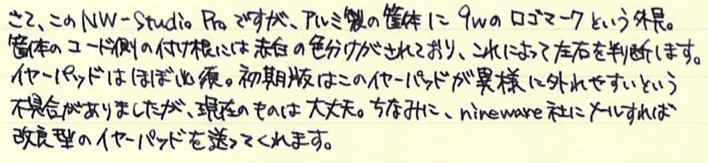 さて、このNW-Studio Proですが、アルミ製の筐体に9wのロゴマークという外見。
筐体のコード側の付け根には赤白の色分けがされており、これによって左右を判断します。
イヤーパッドはほぼ必須。初期版はこのイヤーパッドが異様に外れやすいという
不具合がありましたが、現在のものは大丈夫。ちなみに、nineware社にメールすれば
改良型のイヤーパッドを送ってくれます。